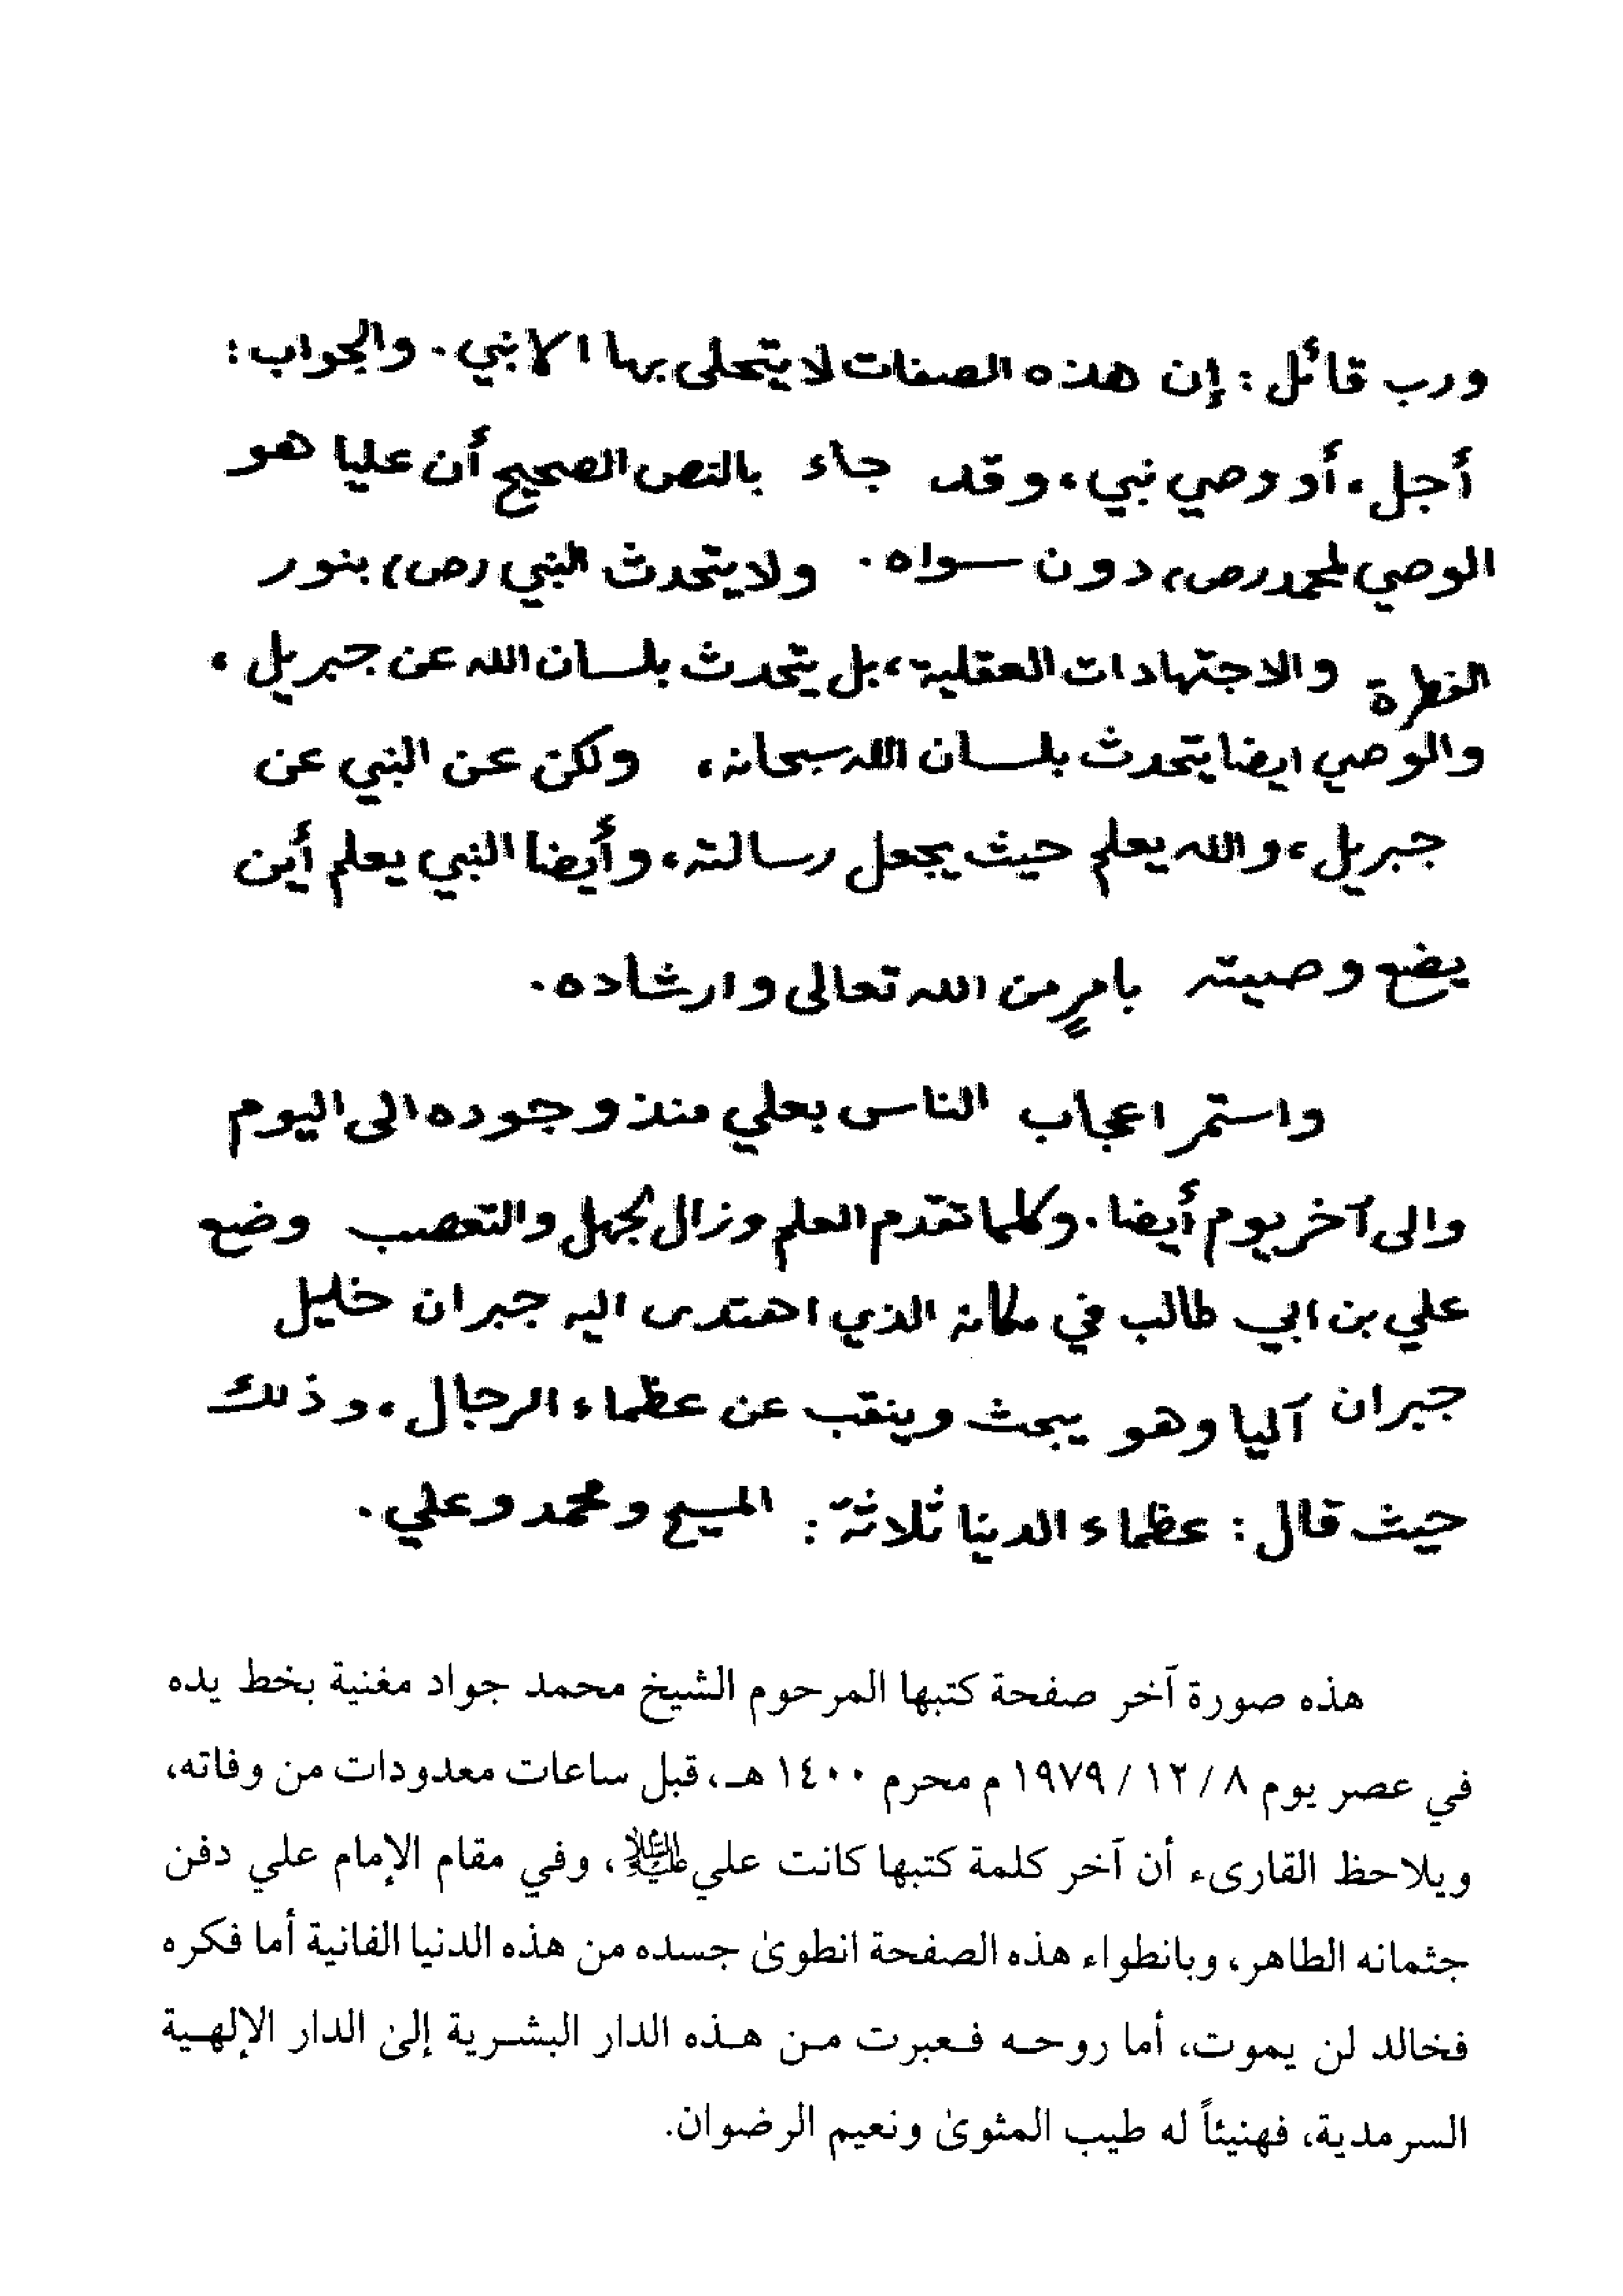 ورب قائل : إن هذه الصفات لا يتحلى بها الا نبي . والجواب :
أجل ، أو وصي نبي ، وقد جاء بالنص الصحيح أن عليا هو
الوصي لمحمد (ص) دون سواه . ولا يتحدث النبي (ص) بنور
الفطرة والاجتهادات العقلية ، بل يتحدث بلسان الله عن جبريل ،
والوصي ايضا يتحدث بلسان الله سبحانه ، ولكن عن النبي عن
جبريل ، والله يعلم حيث يجعل رسالته ، وأيضا النبي يعلم أين
يضع وصيته بامرٍ من الله تعالى وارشاده .
واستمر اعجاب الناس بعلي منذ وجوده الى اليوم
والى آخر يوم أيضا . وكلما تقدم العلم وزال الجهل والتعصب وضع
علي بن ابي طالب في مكانه الذي اهتدى اليه جبران خليل
جبران آليا وهو يبحث وينقب عن عظماء الرجال ، وذلك
حيث قال : عظماء الدينا ثلاثة : المسيح ومحمد وعلي .
هذه صورة آخر صفحة كتبها المرحوم الشيخ محمد جواد مغنية بخط يده
في عصر يوم ٨ / ١٢ / ١٩٧٩ م محرم ١٤٠٠ هـ، قبل ساعات معدودات من وفاته،
ويلاحظ القارىء أن آخر كلمة كتبها كانت علي عليه السلام، وفي مقام الإمام علي دفن
جثمانه الطاهر، وبانطواء هذه الصفحة انطوىٰ جسده من هذه الدنيا الفانية أما فكره
فخالد لن يموت، أما روحـه فـعبرت مـن هـذه الدار البشـرية إلىٰ الدار الإلهـية
السرمدية، فهنيئاً له طيب المثوىٰ ونعيم الرضوان.